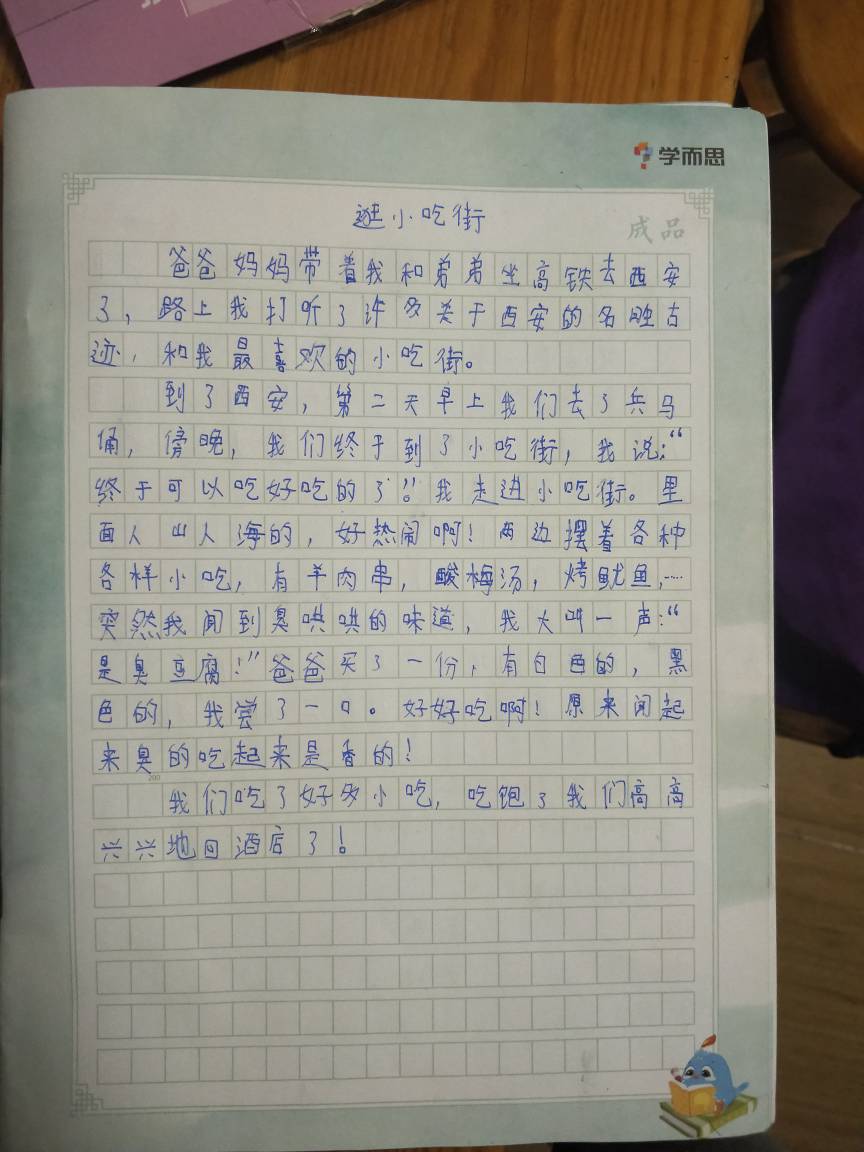 学而思
逛小吃街
成品
爸爸妈妈带着我和弟弟坐高铁去西安
了，路上我打听了许多关于西安的名胜古
迹，和我最喜欢的小吃街。
到了西安，第二天早上我们去了兵马
俑，傍晚，我们终于到了小吃街，我说：“
终于可以吃好吃的了！！我走进小吃街。里
面人山人海的，好热闹啊！两边摆着各种
各样小吃，有羊肉串，酸梅汤，烤鱿鱼，……
突然我闻到臭哄哄的味道，我大叫一声：“
是臭豆腐！”爸爸买了一份，有白色的，黑
色的，我尝了一口。好好吃啊！原来闻起
来臭的吃起来是香的！
200
我们吃了好多小吃，吃饱了我们高高
兴兴地回酒店了！